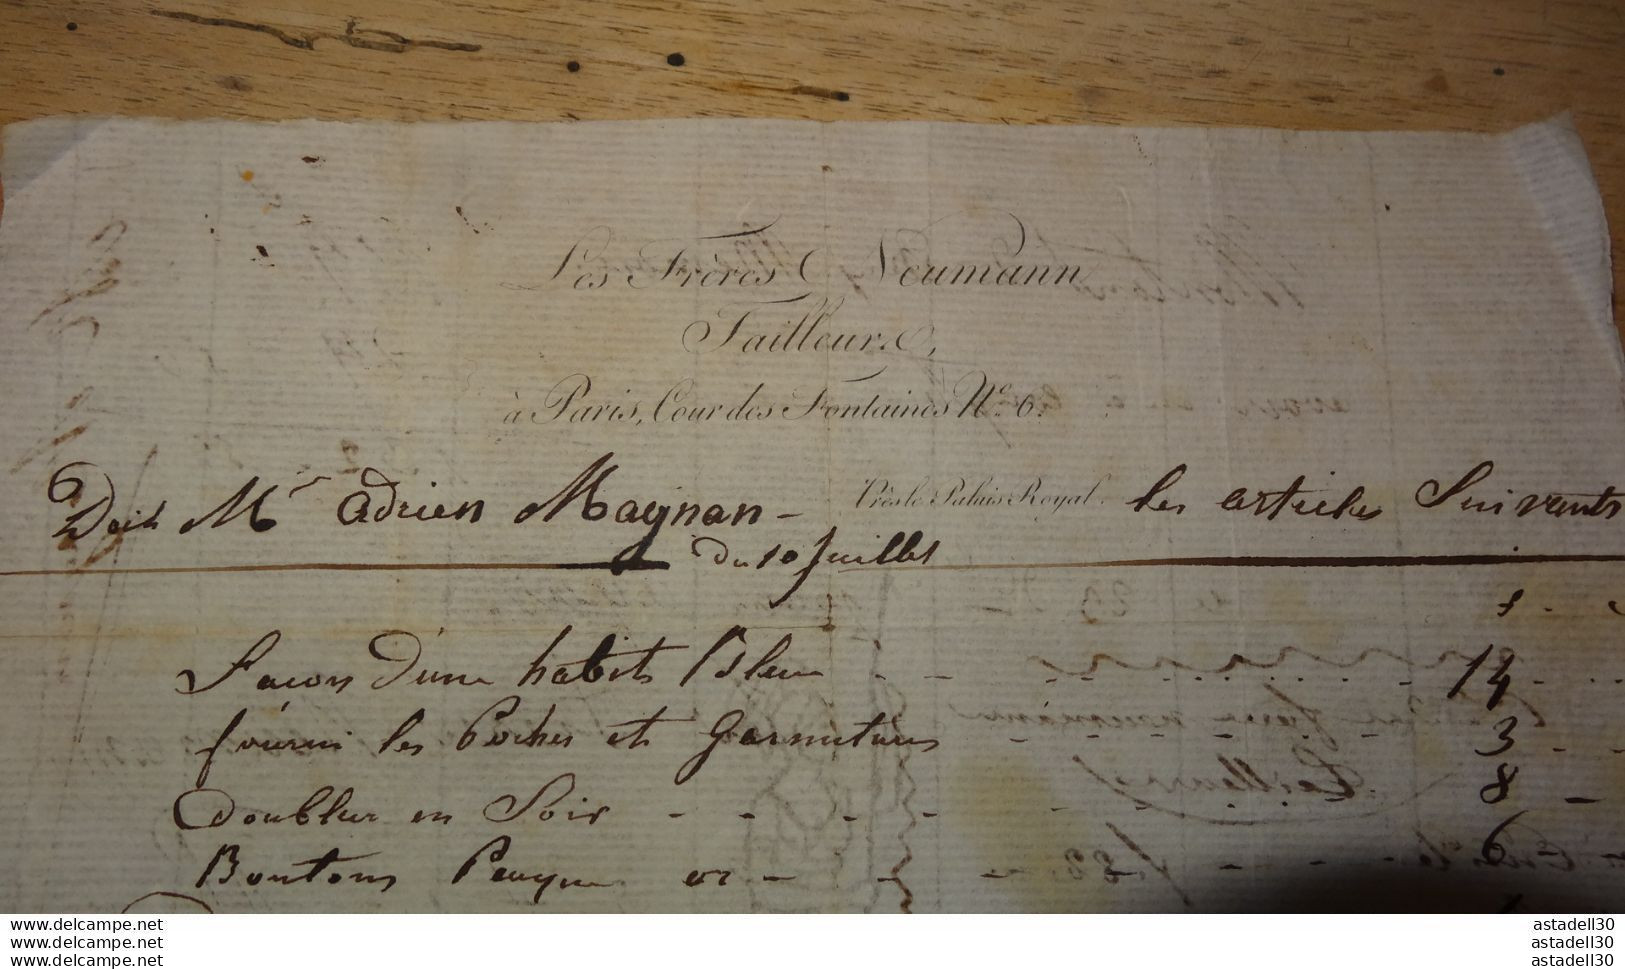 Les Frères Neumann
Tailleurs,
à Paris, Cour des Fontaines N.º 6.
Près le Palais Royal.
Doit Mr adrien Magnan - les articles Suivants
du 10 Juillet
Facon d'une habit Bleu - - 14
fourni les Poches et garnitures - - 3
doublur en Soir - - - - 8
Boutons or - - - 6
www.delcampe.net
www.delcampe.net
www.delcampe.net
astadell30
astadell30
astadell30